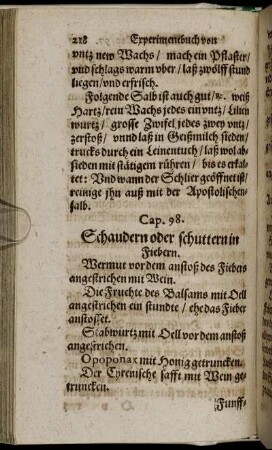 218 Experimentbuch von
vntz new Wachs / mach ein Pflaster /
vnd schlags warm vber / laß zwölff stund
liegen / vnd erfrisch.
Folgende Salb ist auch gut / ꝛc. weiß
Hartz / rein Wachs jedes ein vntz / Lilien
wurtz / grosse Zwifel jedes zwey vntz /
zerstoß / vnnd laß in Geißmilch sieden /
trucks durch ein Leinentuch / laß wol ab-
sieden mit stätigem rühren / bis es erkal-
tet: Vnd wann der Schlier geöffnet ist /
reinige jhn auß mit der Apostolischen-
salb.
Cap. 98.
Schaudern oder schuttern in
Fiebern.
Wermut vor dem anstoß des Fiebers
angestrichen mit Wein.
Die Fruchte des Balsams mit Oell
angestrichen ein stundte / ehe das Fieber
anstosset.
Stabwurtz mit Oell vor dem anstoß
angestrichen.
Opoponax mit Honig getruncken.
Der Cyrenische safft mit Wein ge-
truncken.
Funff-